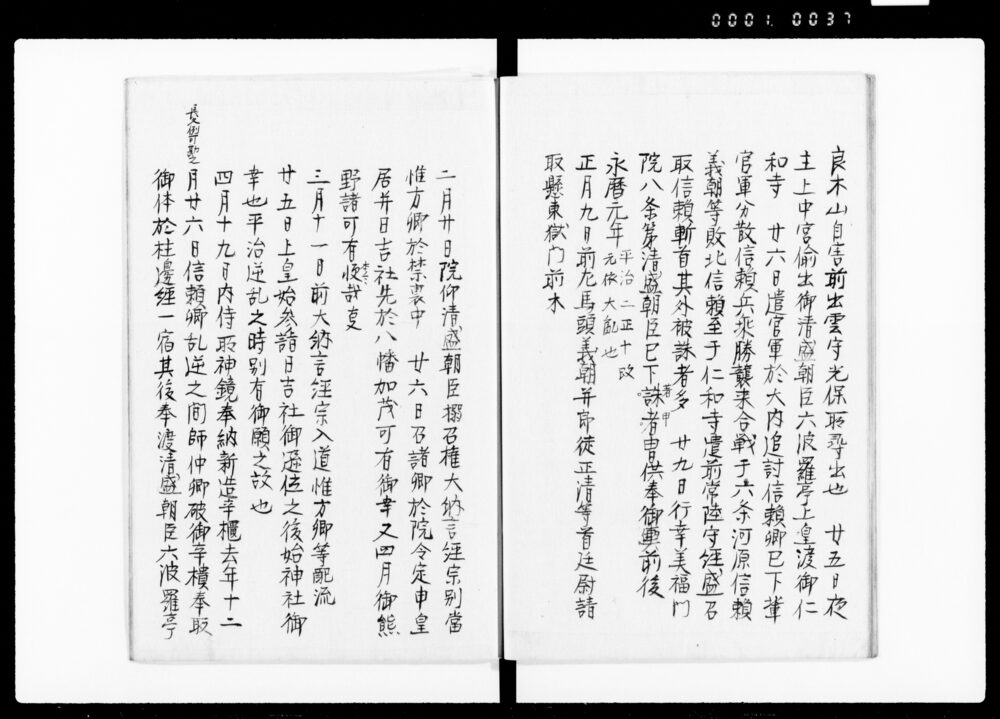 0001 0037
良木山自害前出雲守光保取尋出也　廿五日夜
主上中宮偷出御清盛朝臣六波羅亭上皇渡御仁
和寺　廿六日遣官軍於大内追討信頼卿已下輩
官軍分散信頼兵乗勝襲来合戦于六条河原信頼
義朝等敗北信頼至于仁和寺遣前常陸守経盛召
取信頼斬首其外被誅者多　廿九日行幸美福門
院八条第清盛朝臣已下誅者冑供奉御輿前後
著甲
永暦元年　平治二正十改
元依大乱也
正月九日前左馬頭義朝并郎従正清等首廷尉請
取懸東獄門前木
二月廿日院仰清盛朝臣搦召権大納言経宗別当
惟方卿於禁裏中　廿六日召諸卿於院令定申皇
居并日吉社先於八幡加茂可有御幸又四月御熊
野諸可有便哉㕝
三月十一日前大納言経宗入道惟方卿等配流
廿五日上皇始参詣日吉社御遜位之後始神社御
幸也平治逆乱之時別有御願之故也
四月十九日内侍取神鏡奉納新造辛櫃去年十二
月廿六日信頼卿乱逆之間師仲卿破御辛櫃奉取
御体於桂辺経一宿其後奉渡清盛朝臣六波羅亭